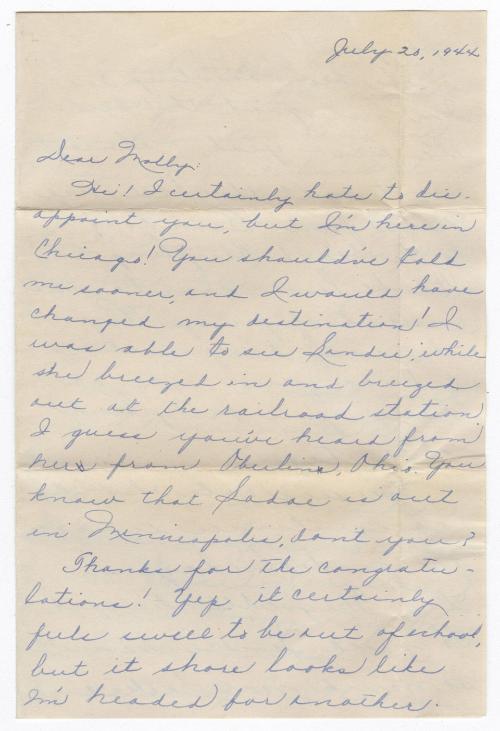 July 20, 1944
Dear Molly:
Hi! I certainly hate to dis-
appoint you, but I'm here in
Chicago! You should've told
me sooner, and I would have
changed my destination! I
was able to see Sandie, while
she breezed in and breezed
out at the railroad station.
I guess you've heard from
her from Oberlin, Ohio. You
know that Sadae is out
in Minneapolis, don't you?
Thanks for the congratu-
lations! Yep it certainly
feels swell to be out of school,
but it shore looks like
I'm headed for another.